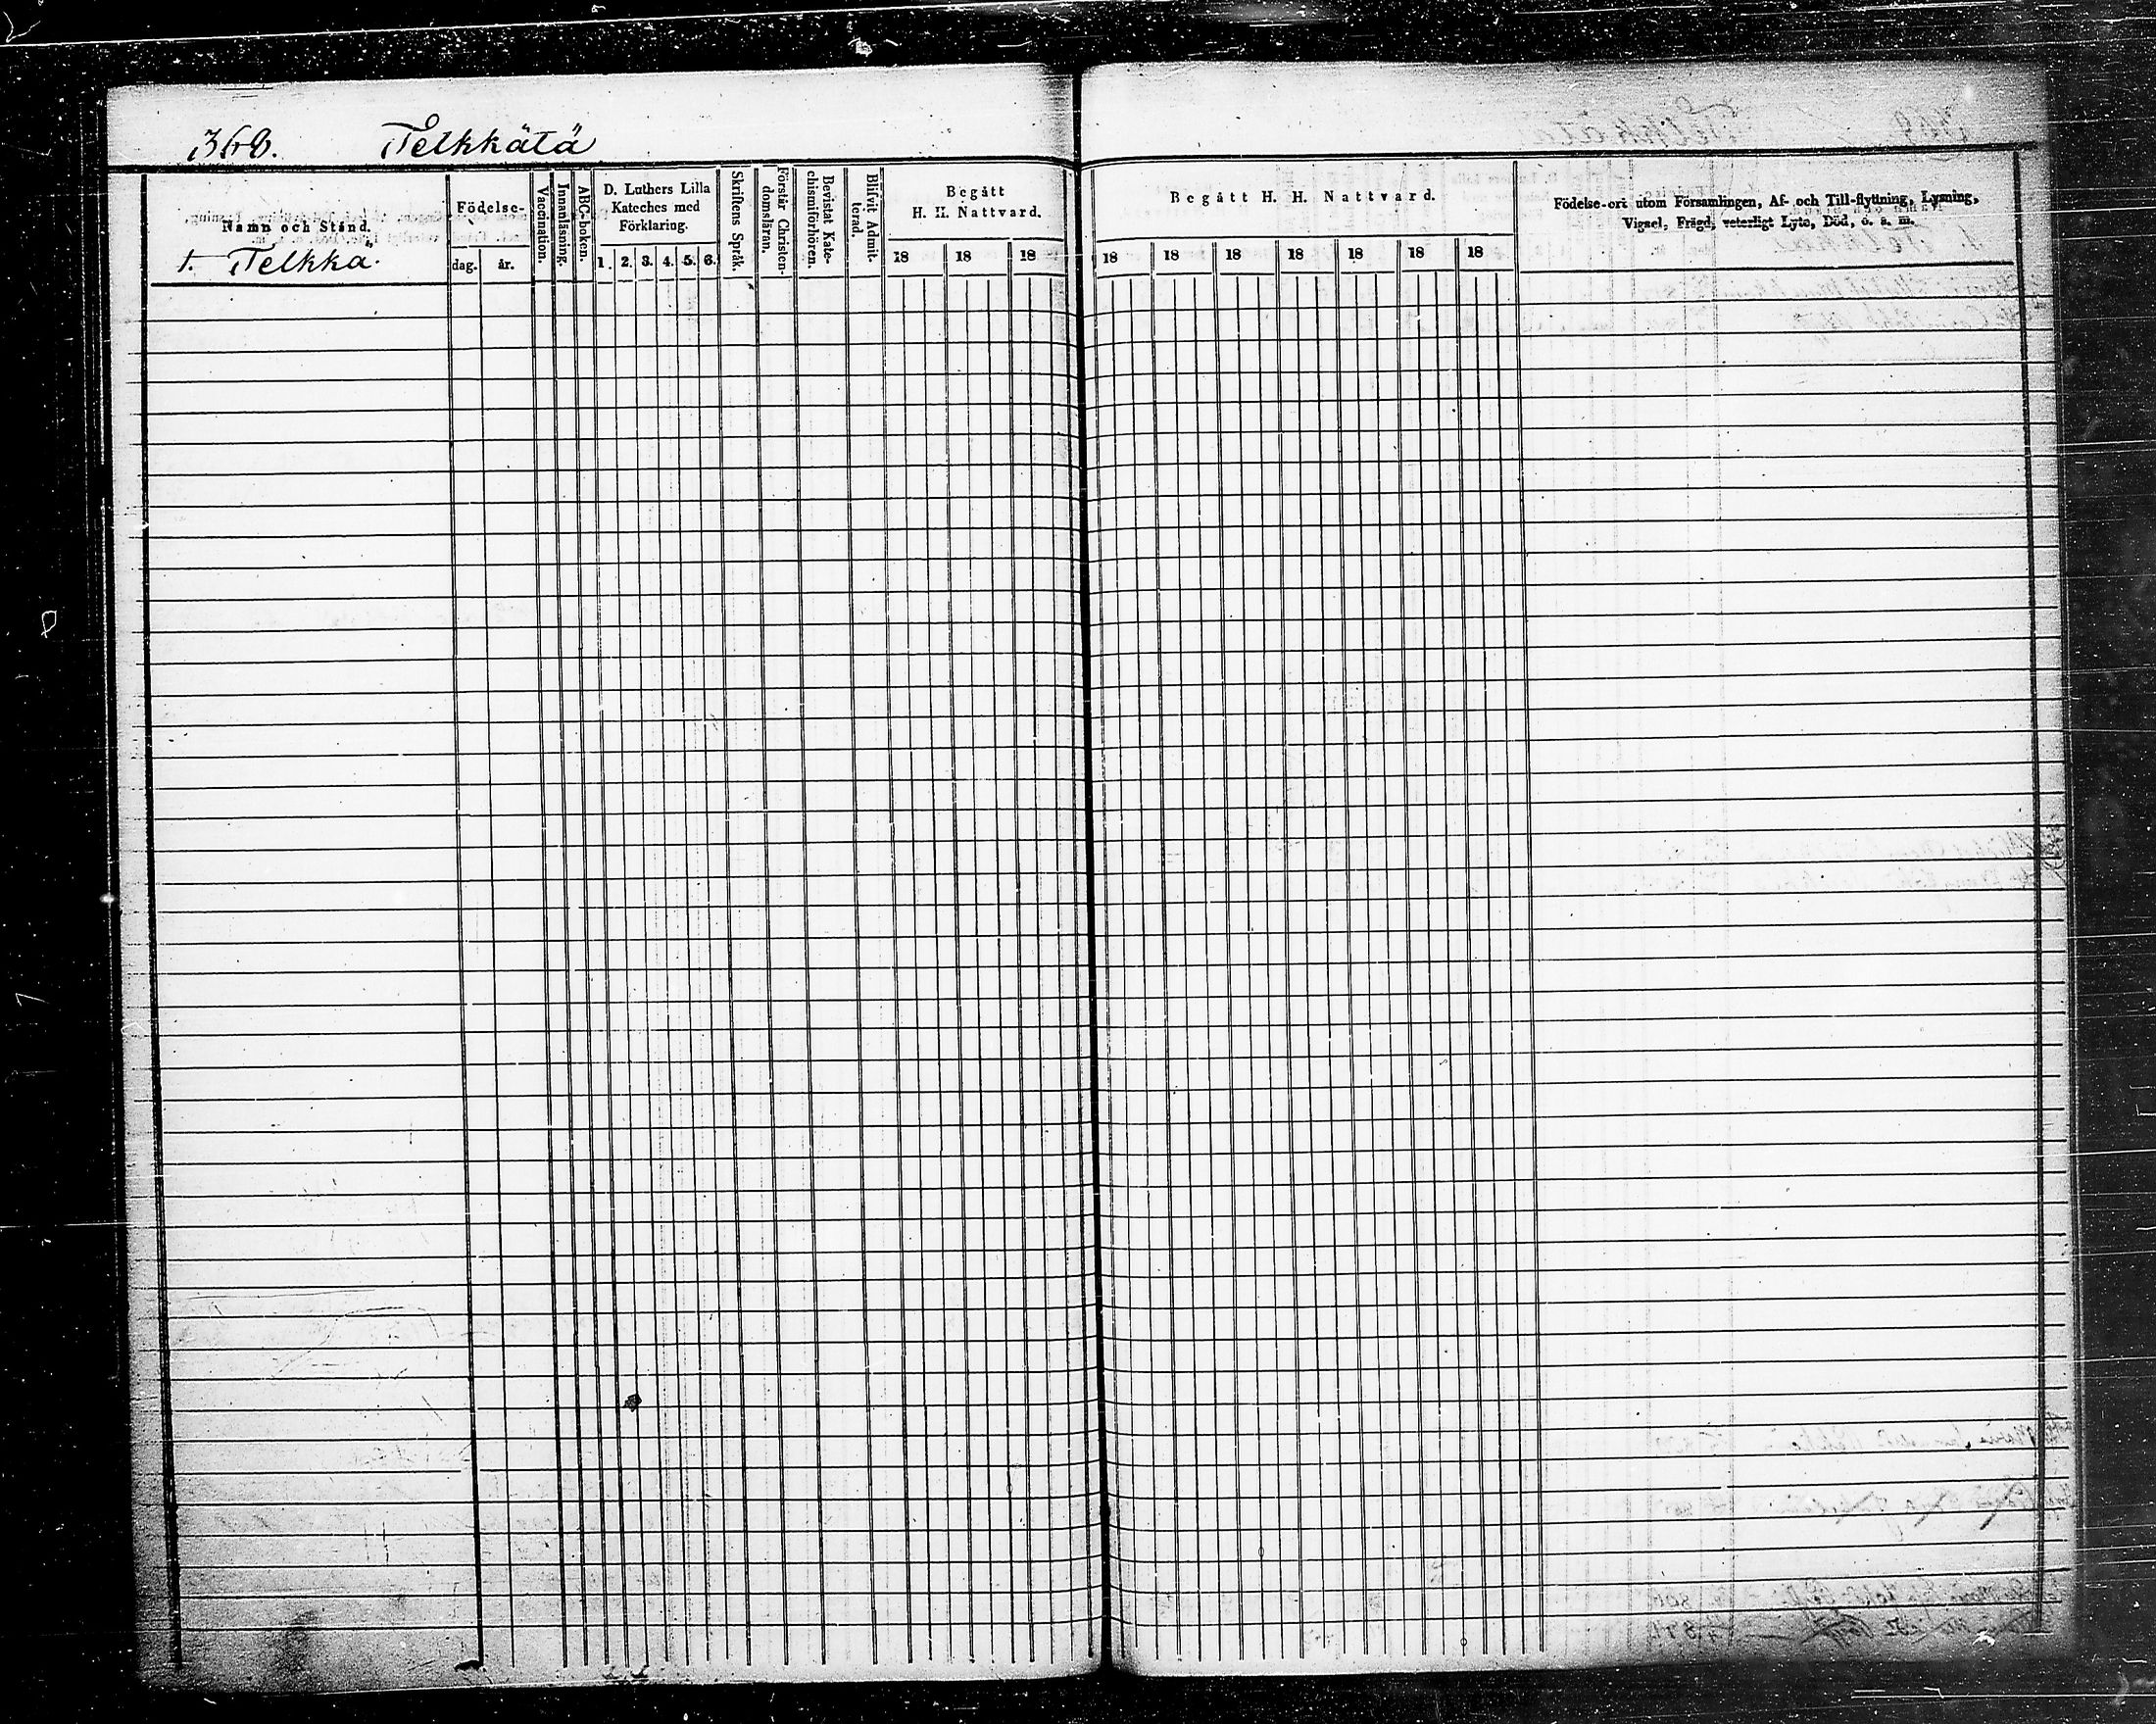 368. Telkkätä
Namn och Stånd.
1. Telkkä.
Födelse-
dag. år.
Vaccination.
Innanläsning.
ABC-boken.
D. Luthers Lilla
Kateches med
Förklaring.
1. 2. 3. 4. 5. 6.
Skriftens Språk.
Förstår Christen-
domsläran.
Bevistat Kate-
chismiförhören.
Blifvit Admit-
terad.
Begått
H. H. Nattvard.
18 18 18
Begått H. H. Nattvard.
18 18 18 18 18 18 18
Födelse-ort utom Församlingen, Af- och Till-flyttning, Lysning,
Vigsel, Frägd, veterligt Lyte, Död, o. s. m.